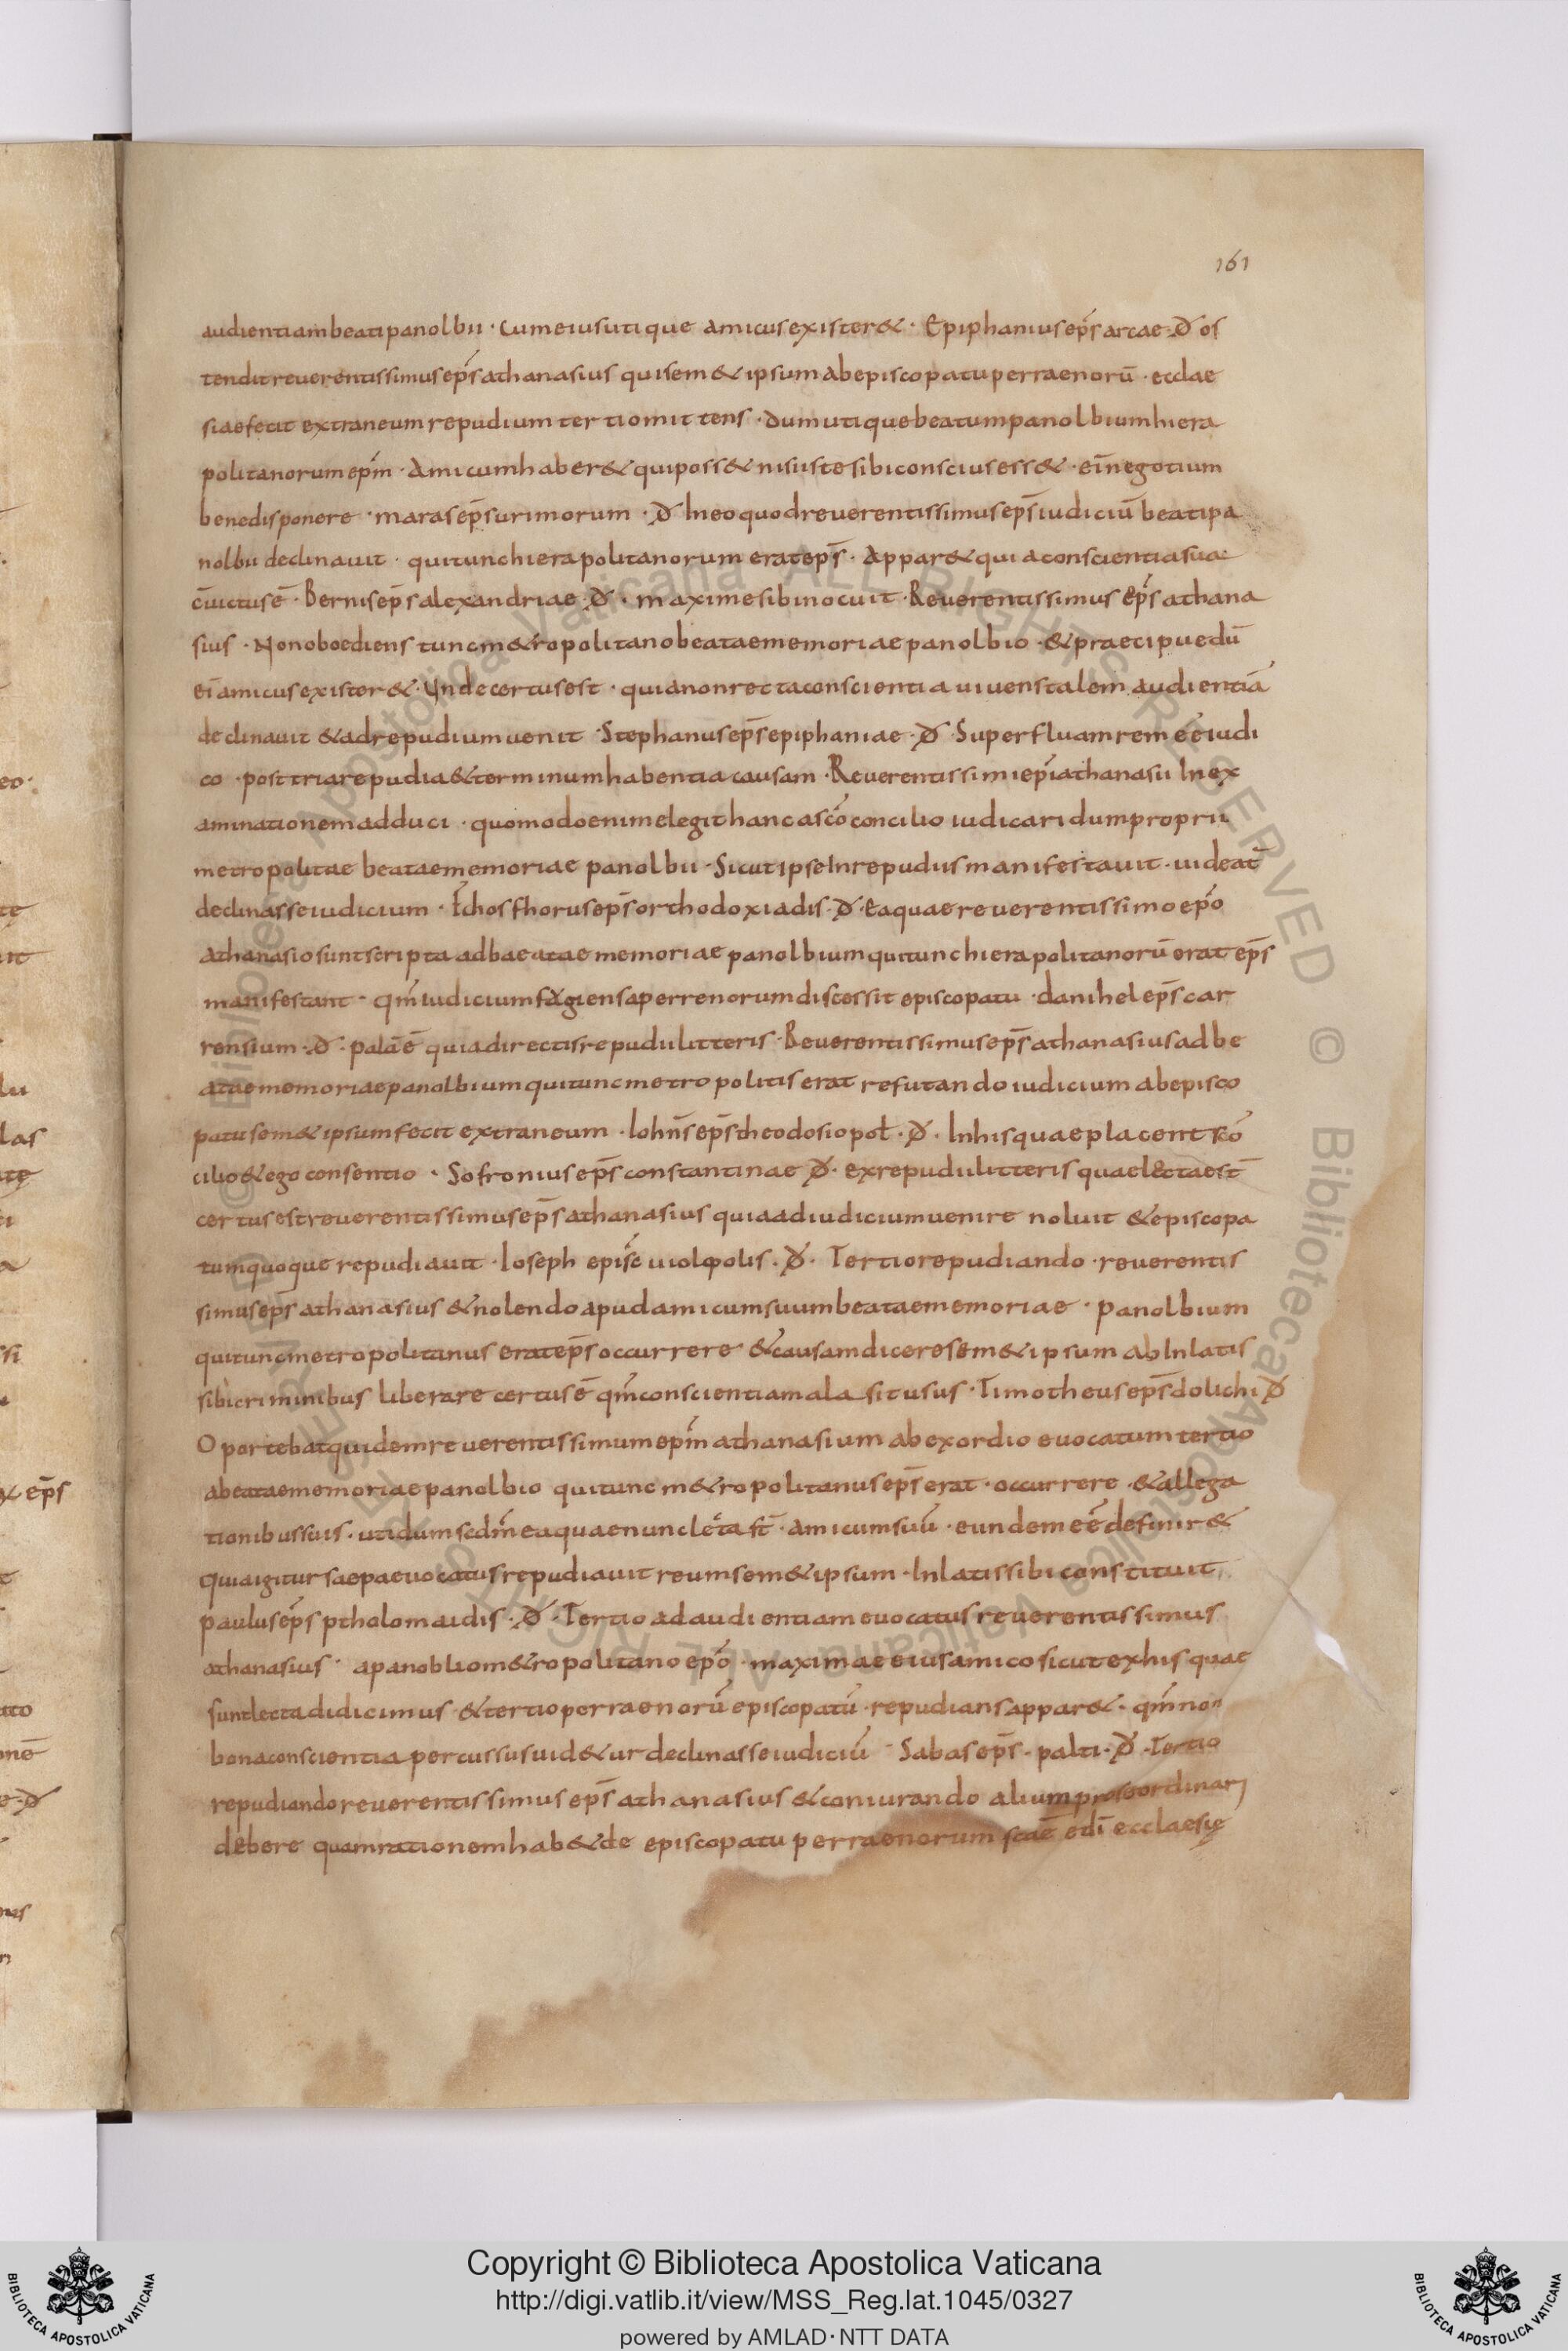 161
audientiam beati panolbii · Cum eius utique amicus exister& · Epiphanius ep̄s arcae · đ os
tendit reuerentissimus ep̄s athanasius qui sem& ipsum ab episcopatu perraenorū · ecclae
siae fecit extraneum repudium tertio mittens · dum utique beatum panolbium hiera
politanorum ep̄m · Amicum haber& qui poss& nisi iste sibi conscius ess& · eī negotium
bene disponere · maras ep̄s urimorum · đ In eo quod reuerentissimus ep̄s iudiciū beati pa
nolbii declinauit · qui tunc hierapolitanorum erat ep̄s · Appar& quia conscientia sua
c̄uictus ē · Bernis ep̄s alexandriae · đ · maxime sibi nocuit · Reuerentissimus ep̄s athana
sius · Non oboediens tunc m&ropolitano beatae memoriae panolbio · & praecipue dū
eī amicus exister& · Unde certus est · quia non recta conscientia uiuens talem audientiā
declinauit & ad repudium uenit · Stephanus ep̄s epiphaniae · đ · Superfluam rem eē iudi
co · post tria repudia & terminum habentia causam · Reuerentissimi ep̄i athanasii In ex
aminationem adduci · quomodo enim elegit hanc a sc̄o concilio iudicari dum proprii
metropolitae beatae memoriae panolbii · Sicut ipse In repudiis manifestauit · uideat̄
declinasse iudicium · ep̄s orthodoxiadis · đ · Ea quae reuerentissimo ep̄o
athanasio sunt scripta ad baeatae memoriae panolbium qui tunc hierapolitanorū erat ep̄s
manifestant · qm̄ iudicium fugiens a perrenorum discessit episcopatu · danihel ep̄s car
rensium · đ · palā ē quia directis repudii litteris · Reuerentissimus ep̄s athanasius ad be
atae memoriae panolbium qui tunc metropolitis erat refutando iudicium ab episco
patu sem& ipsum fecit extraneum · Iohn̄s ep̄s theodosiopoł · đ · In his quae placent sc̄o
cilio & ego consentio · Sofronius ep̄s constantinae đ · ex repudii litteris quae lecta est
certus est reuerentissimus ep̄s athanasius quia ad iudicium uenire noluit & episcopa
tum quoque repudiauit · Ioseph đ · Tertio repudiando · reuerentis
simus ep̄s athanasius & nolendo apud amicum suum beatae memoriae · panolbium
qui tunc metropolitanus erat ep̄s occurrere & causam dicere sem& ipsum ab Inlatis
sibi criminibus liberare certus ē qm̄ conscientia mala sit usus · Timotheus ep̄s dolichi đ
Oportebat quidem reuerentissimum ep̄m athanasium ab exordio euocatum tertio
a beatae memoriae panolbio qui tunc m&ropolitanus ep̄s erat · occurrere · & allega
tionibus suis · uti dum scdm̄ ea quae nunc lecta st̄ · amicum suū · eundem eē definir&
quia igitur saepae euocatus repudiauit reum sem& ipsum · Inlatis sibi constituit
paulus ep̄s ptholomaidis · đ · Tertio ad audientiam euocatus reuerentissimus
athanasius · a panoblio m&ropolitano ep̄o · maximae eius amico sicut ex his quae
sunt lecta didicimus · & tertio perraenorū episcopatū · repudians appar& · qm̄ non
bona conscientia percussus uid&ur declinasse iudiciū · Sabas ep̄s · palti · đ · Tertio
repudiando reuerentissimus ep̄s athanasius & coniurando alium pro se ordinari
debere quam rationem hab& de episcopatu perraenorum scae ecclaesię